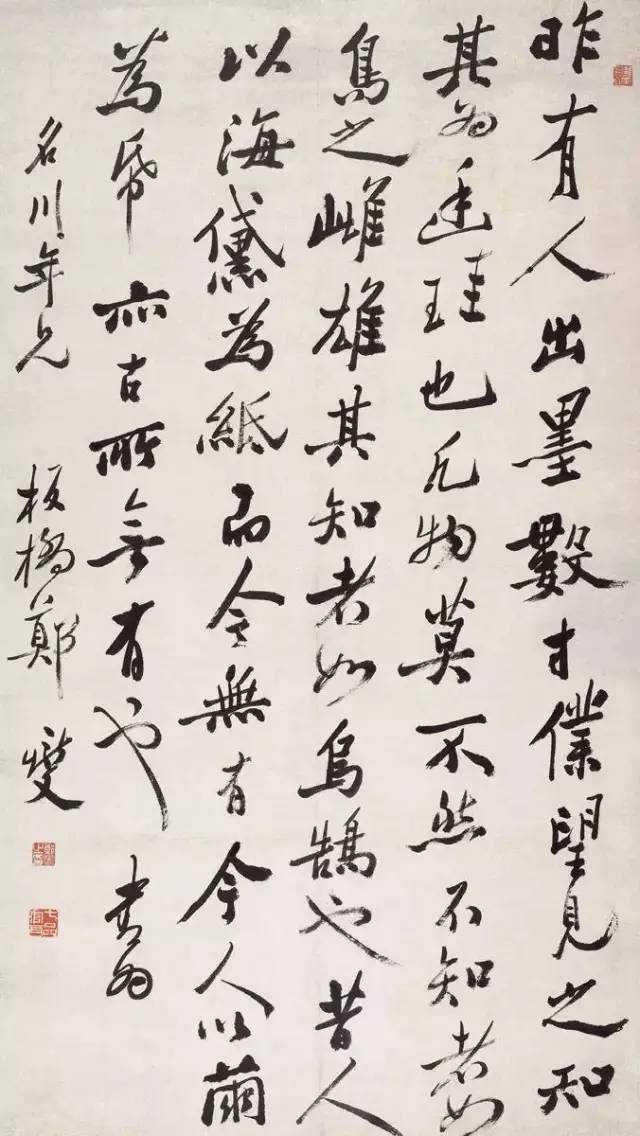 昨有人出墨數寸僕望見之知
其為廷珪也凡物莫不然不知者如
鳥之雌雄其知者如烏鵠也昔人
以海黛為紙而今無有今人以繭
為帋亦古所無有也 書為
名川年兄 板橋鄭燮
七品官耳